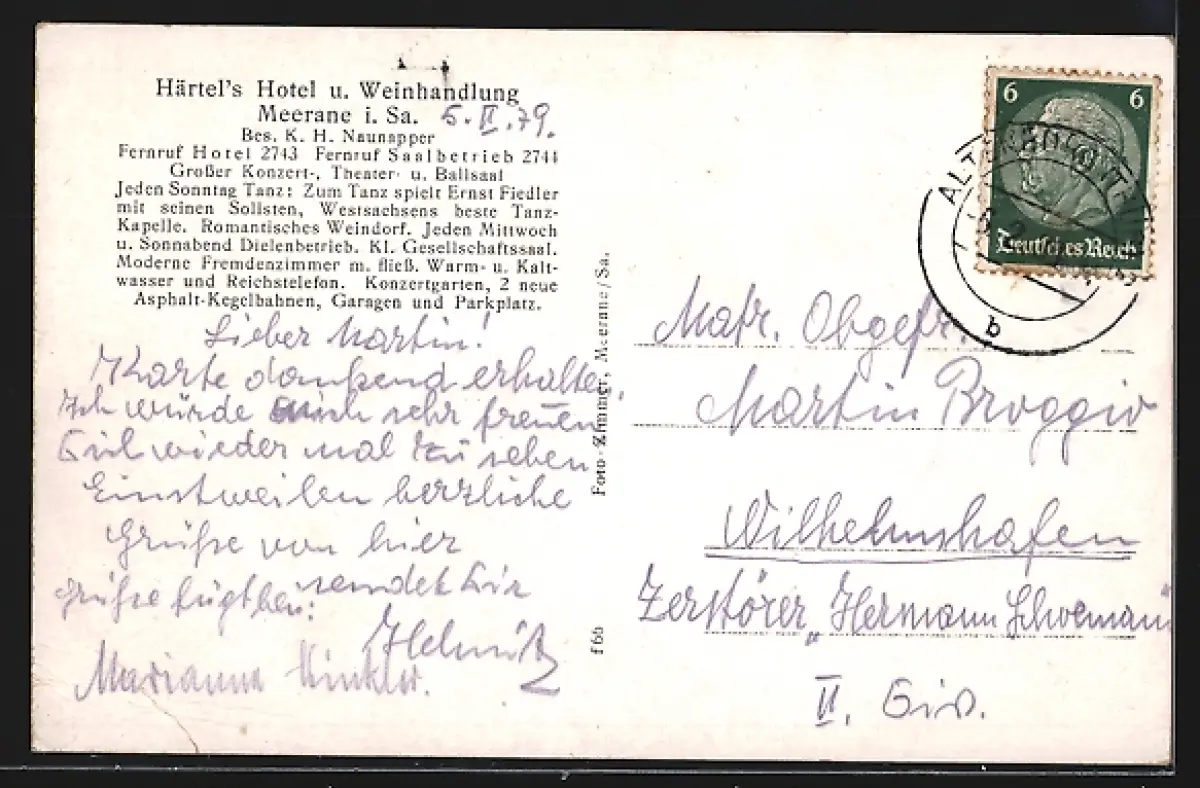 Härtel's Hotel u. Weinhandlung
Meerane i. Sa. 5. II. 39.
Bes. K. H. Naunapper
Fernruf Hotel 2743 Fernruf Saalbetrieb 2744
Großer Konzert-, Theater- u. Ballsaal
Jeden Sonntag Tanz: Zum Tanz spielt Ernst Fiedler
mit seinen Solisten, Westsachsens beste Tanz-
Kapelle. Romantisches Weindorf. Jeden Mittwoch
u. Sonnabend Dielenbetrieb. Kl. Gesellschaftssaal.
Moderne Fremdenzimmer m. fließ. Warm- u. Kalt-
wasser und Reichstelefon. Konzertgarten, 2 neue
Asphalt-Kegelbahnen, Garagen und Parkplatz.
Lieber Martin!
Karte dankend erhalten,
Ich würde mich sehr freuen
Dich wieder mal zu sehen
Einstweilen herzliche
Grüße von hier
sendet Dir
Helmut
Grüße fügt bei:
Marianne Winkler.
Foto-Zimmer, Meerane/Sa.
f 60
6 6
Deutsches Reich
b
Matr. Obgefr.
Martin Broggio
Wilhelmshafen
Zerstörer „Hermann Schoemann
II. Div.